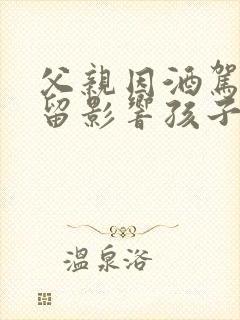 父親因酒駕
留影響孩子
溫泉浴